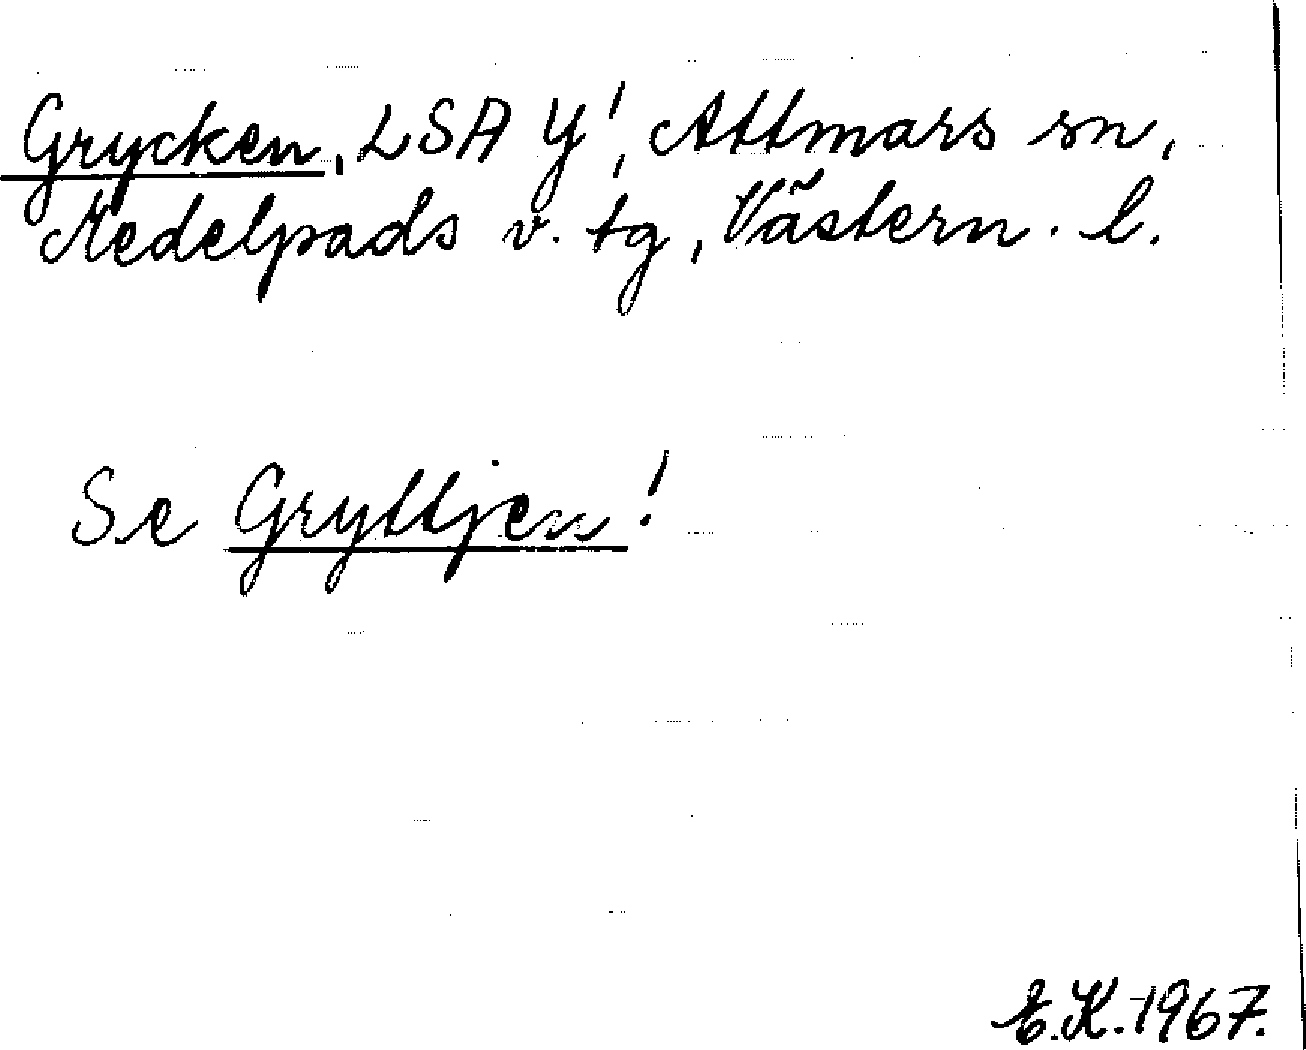 Grycken, LSA Y!, Attmars sn,
Medelpads v. tg, Västern. l.
Se Gryttjen!
E.K. 1967.